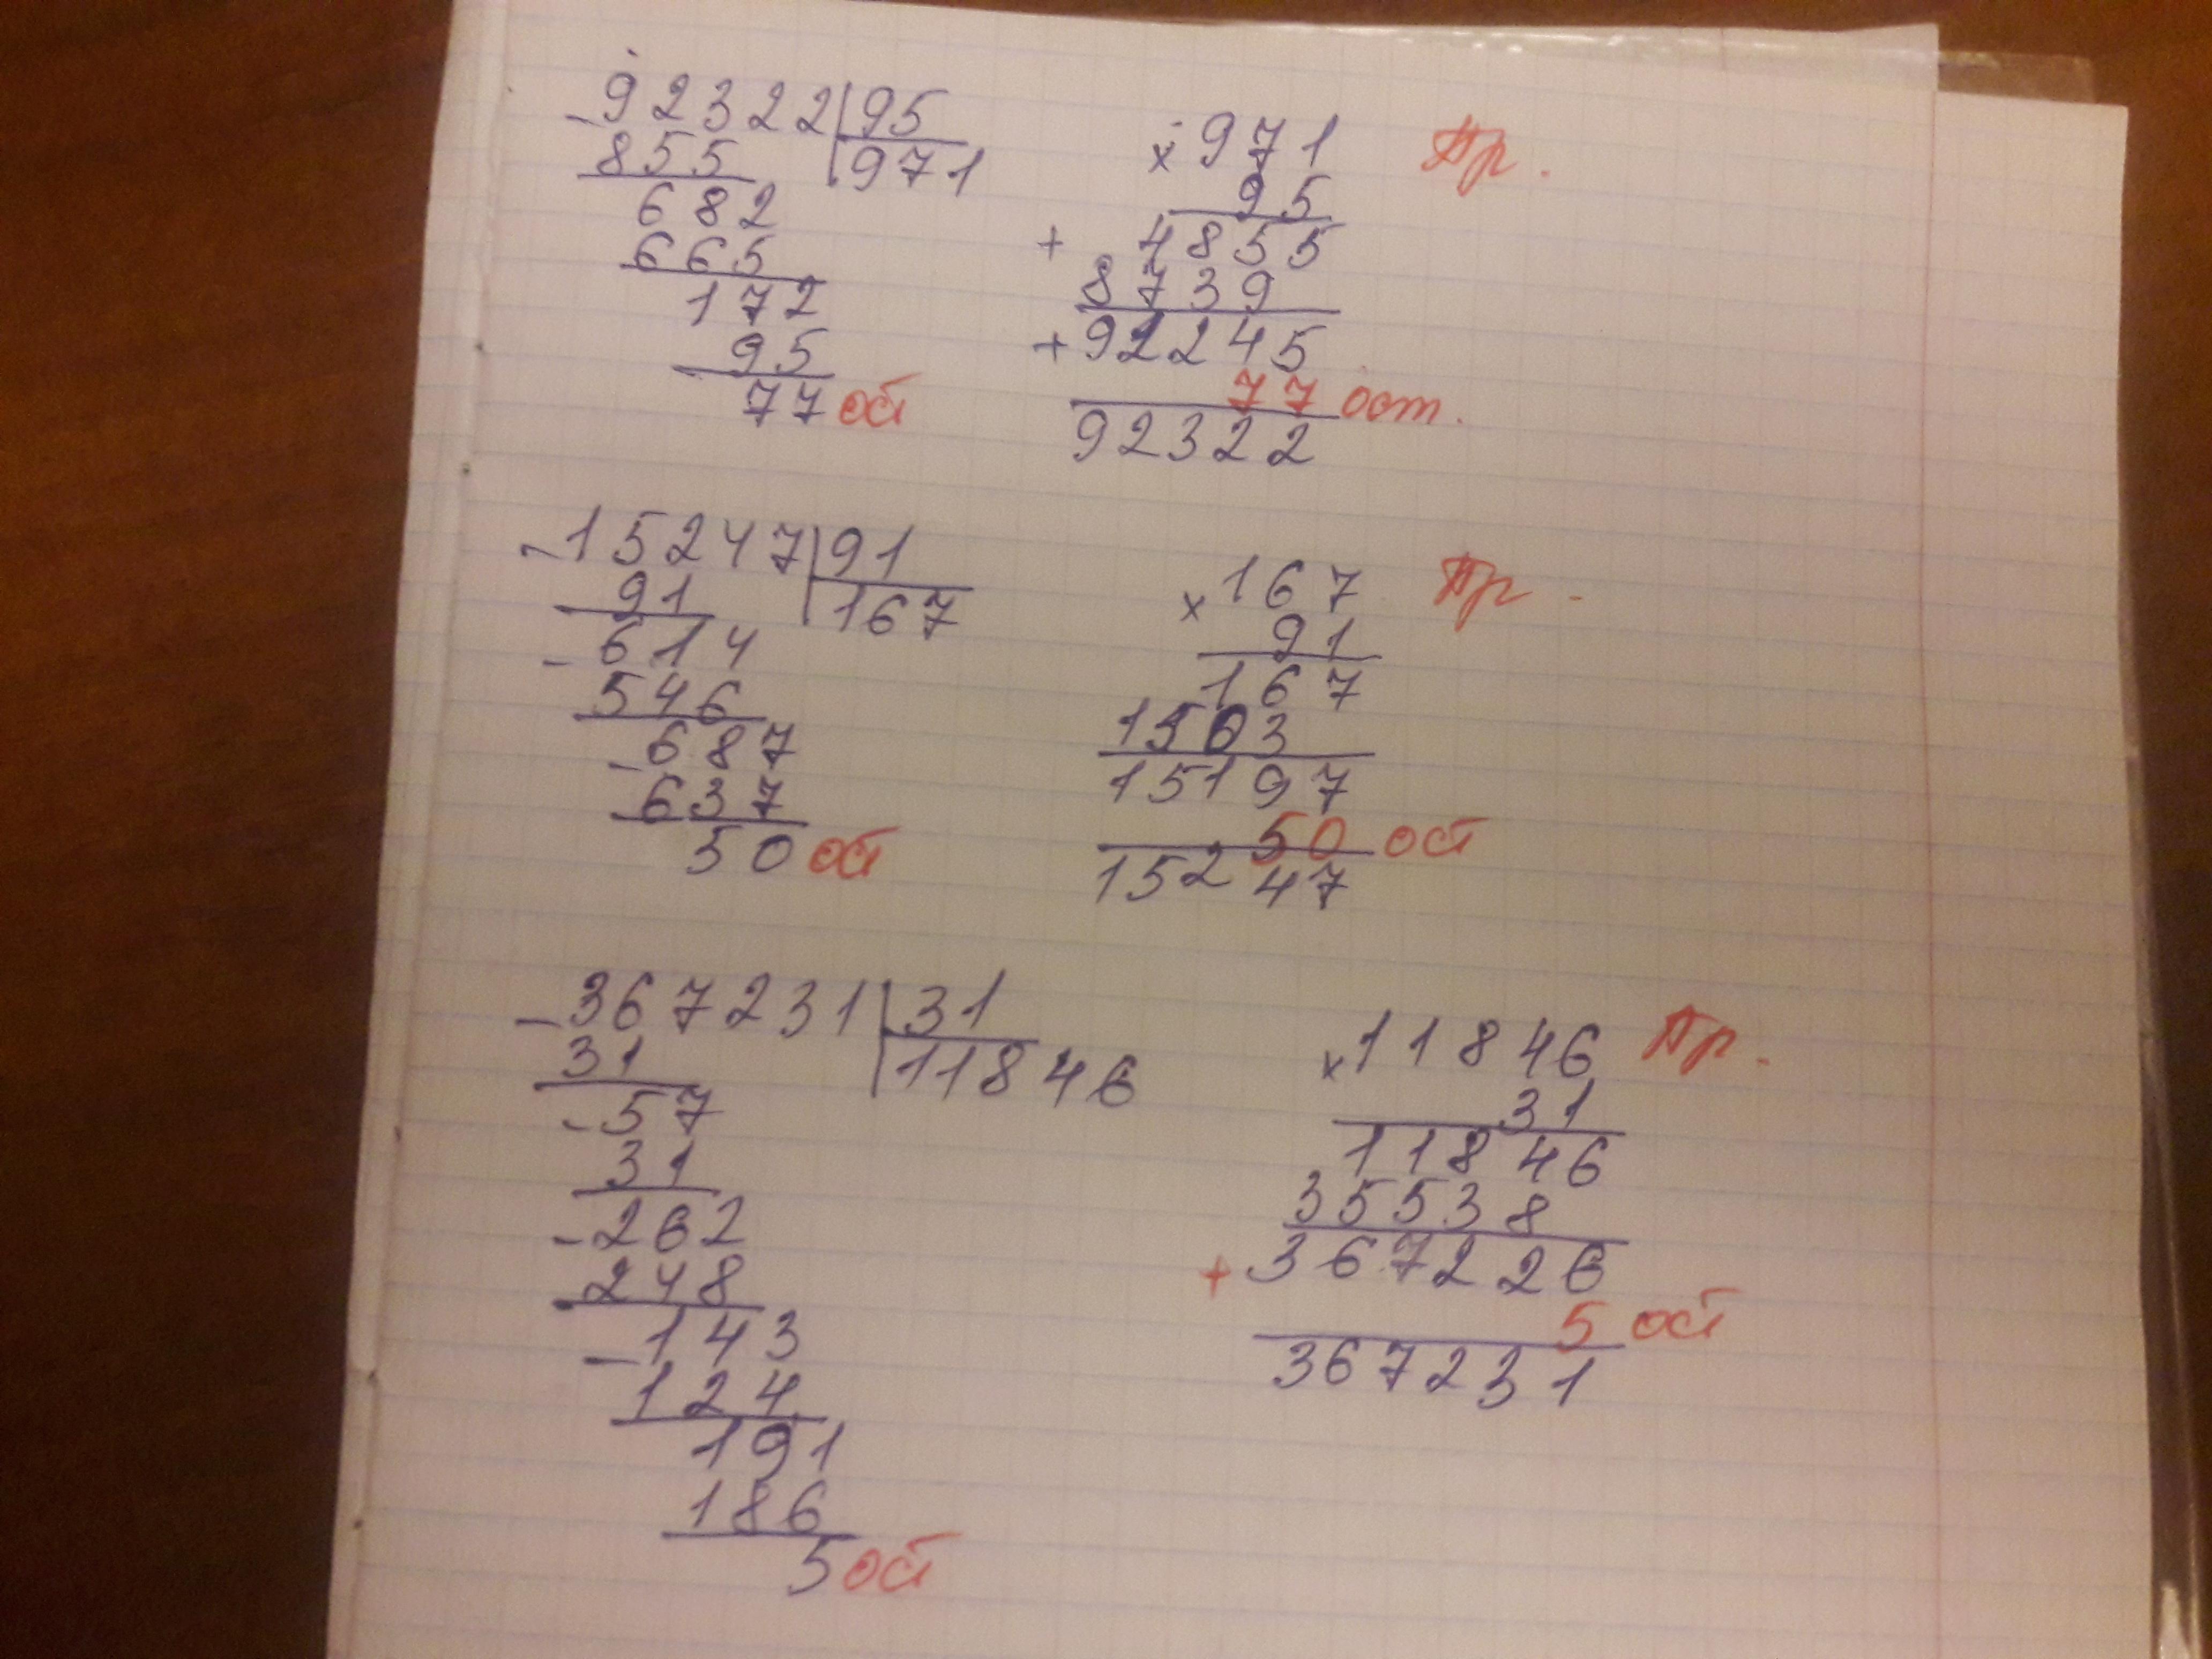 - 92322 | 95
855 | 971
682
665
172
95
77 ост
× 971 Пр.
95
+ 4855
8739
+ 92245
77 ост.
92322
- 15247 | 91
91 | 167
- 614
546
- 687
637
50 ост
× 167 Пр.
91
167
1503
15197
50 ост
15247
- 367231 | 31
31 | 11846
- 57
31
- 262
248
- 143
124
191
186
5 ост
× 11846 Пр.
31
11846
35538
+ 367226
5 ост
367231